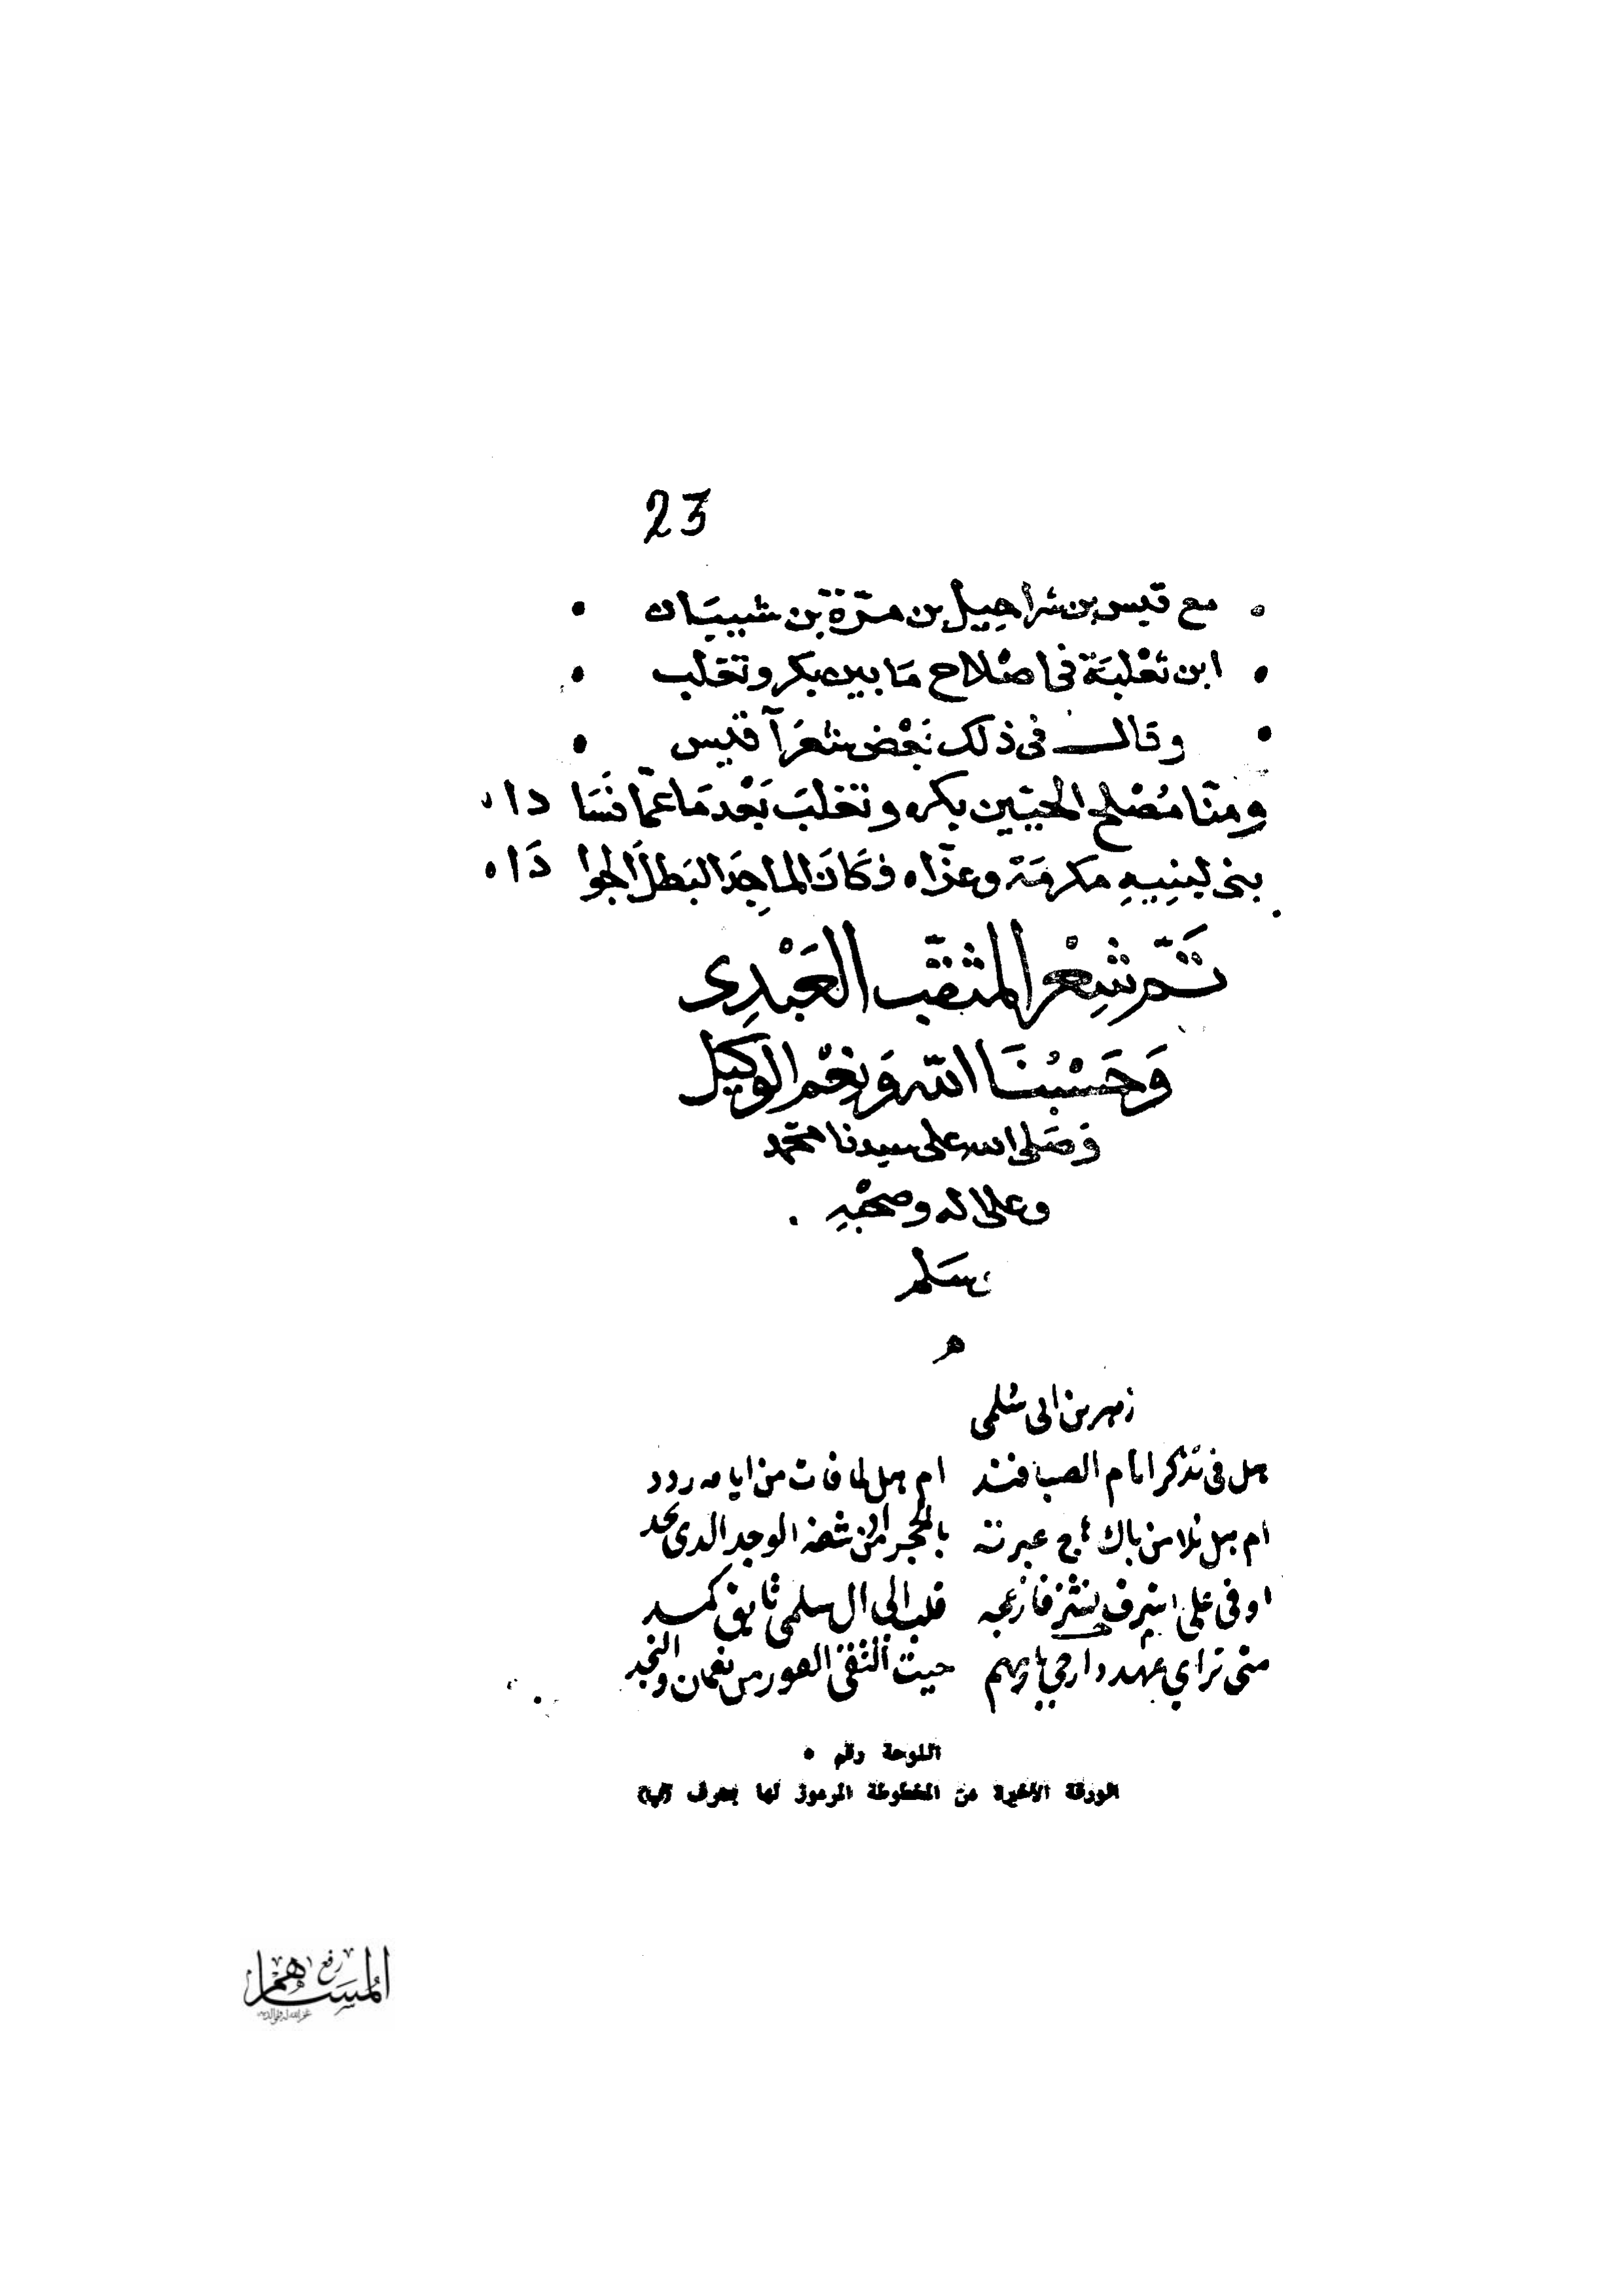 23
مع قيس بن شراحيل بن مرّة بن شيبَان
ابن ثعْلبَة فى اصْلاح مَا بين بكر وتغلب
وقال فى ذلك بَعْض شعَرَآ قيس
ومنّا مُصْلح الحيّين بكر ه وتغلبَ بَعْد مَا عمّا فسَا دا ه
بنى لبنِيهِ مكرمَة وعزّا ه وكَانَ الماجِدَ البَطلَ الجوا دَا ه
تَمّ شِعْر المثقّب العَبْدِى
وَحَسْبُنَا الله وَنِعْم الوكيل
وَصَلى الله على سيدنا محمّد
وعلى اله وصحْبِهِ
وسَلم
م
زهير بن ابى سُلمى
هل فى تذكر ايام الصبا فند ام هل لما فات من ايامه ردد
ام هل تلامن باك هاج عبرته بالحجر اذ شفه الوجد الذى يجد
اوفى على شرف نشز فازعجه قلب الى ال سلمى تايق كمد
متى تراي عهد دار حي بهم حيث التقى الغور من نعمان والنجد
اللوحة رقم ٥
الورقة الأخيرة من المخطوطة المرموز لها بحرف (ب)
رفع
المساهم
غفر الله له ولوالديه